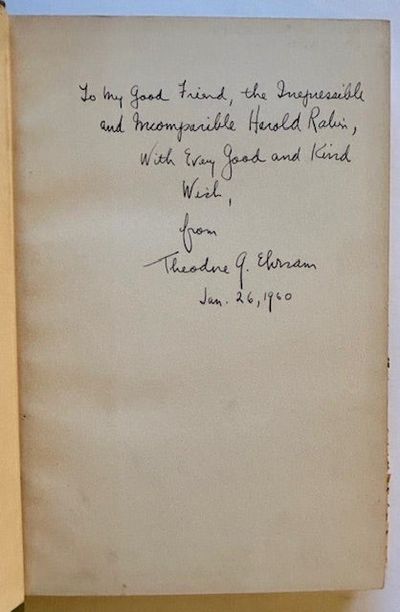 To My Good Friend, the Irrepressible
and Incomparible Harold Rabin,
With Every Good and Kind
Wish,
from
Theodore G. Ehrsam
Jan. 26, 1960